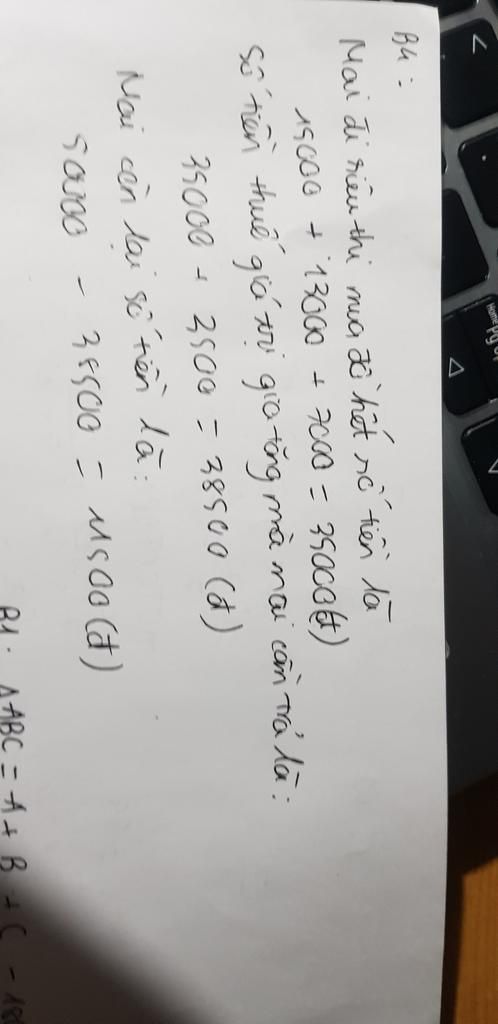 B4:
Mai đi siêu thị mua đồ hết số tiền là
15000 + 13000 + 7000 = 35000(đ)
Số tiền thuế giá trị gia tăng mà mai cần trả là:
35000 + 3500 = 38500(đ)
Mai còn lại số tiền là:
50000 - 38500 = 11500(đ)
B1. ΔABC = A + B + C - 18
Home